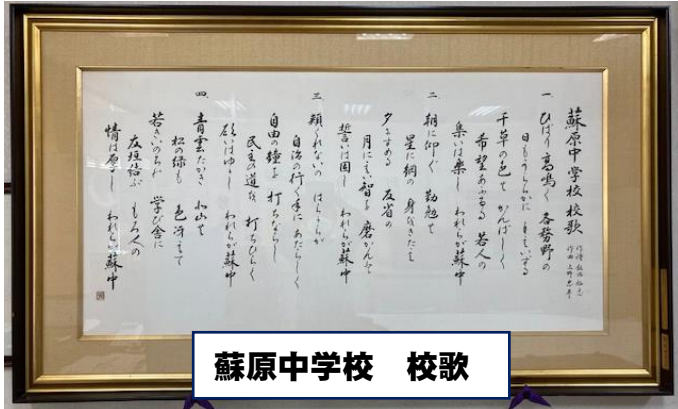 蘇原中学校 校歌
作曲
一、ひばり高鳴く 各務野の
日もうららかに
千草の色も かんばしく
希望あふるる 若人の
集いは楽し われらが蘇中
二、朝に仰ぐ 勤勉を
星に綱の 身をきたえ
夕にする 反省の
月に 智を 磨かんと
誓いは固し われらが蘇中
三、類くれないの はらからが
自治の行く手に あたらしく
自由の鐘を 打ちならし
民主の道を 打ちひらく
願いはゆかし われらが蘇中
四、青雲たかき 山を
松の緑も 色冴えて
若きいのちの 学び舎に
友垣結ぶ もろ人の
情は厚し われらが蘇中
蘇原中学校 校歌